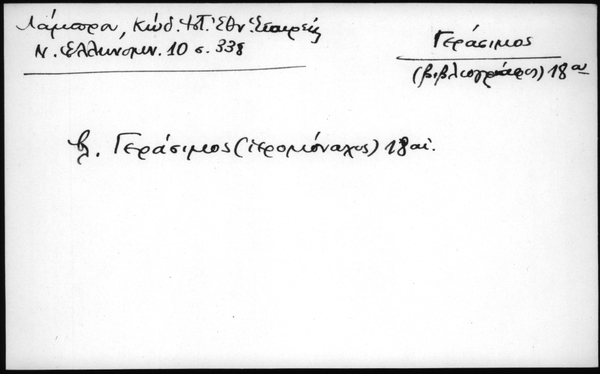 Λάμπρου, Κώδ. Ἱστ. Ἐθν. Ἑταιρείας
Ν. Ἑλληνομν. 10 σ. 338
Γεράσιμος
(βιβλιογράφος) 18 αι
βλ. Γεράσιμος (ἱερομόναχος) 18 αἰ.